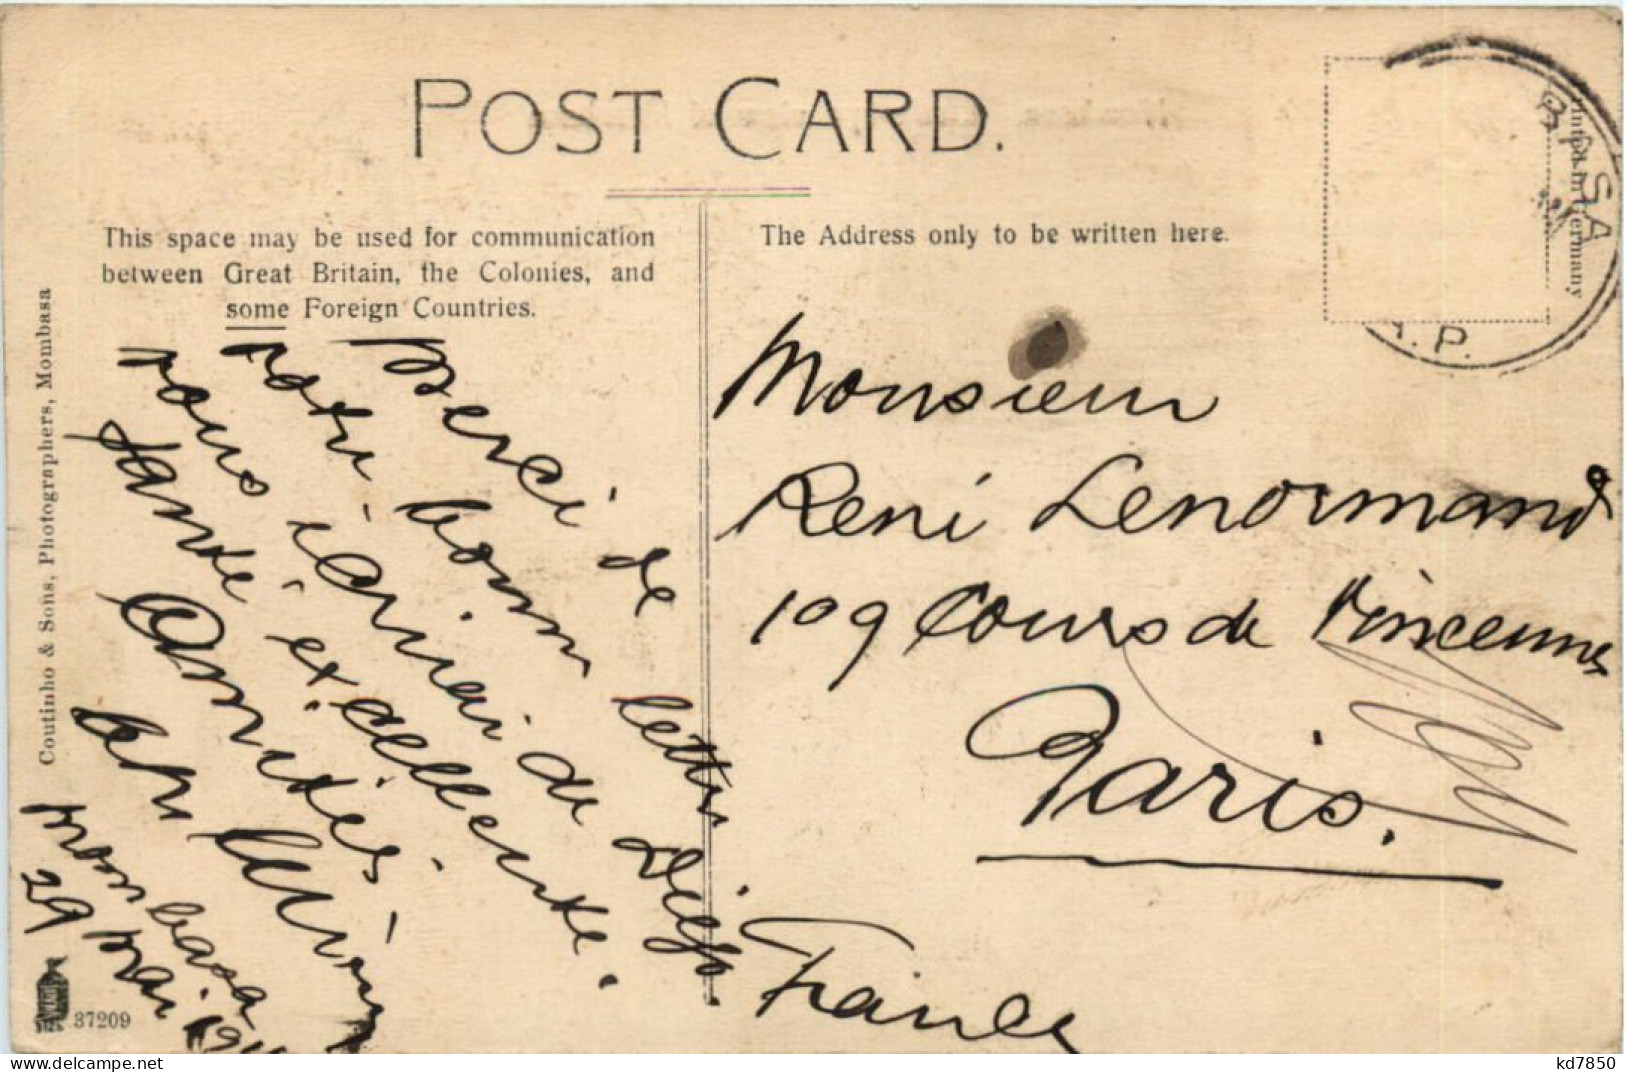 POST CARD.
This space may be used for communication
between Great Britain, the Colonies, and
some Foreign Countries.
The Address only to be written here.
Printed in Germany
BASA
.P.
Coutinho & Sons, Photographers, Mombasa
37209
Merci de votre bonne lettre
vous écrirai de Diégo.
Santé excellente.
Amitiés
Mombasa
29 Mai 191
Monsieur
René Lenormand
109 Cours de Vincennes
Paris.
France
kd7850